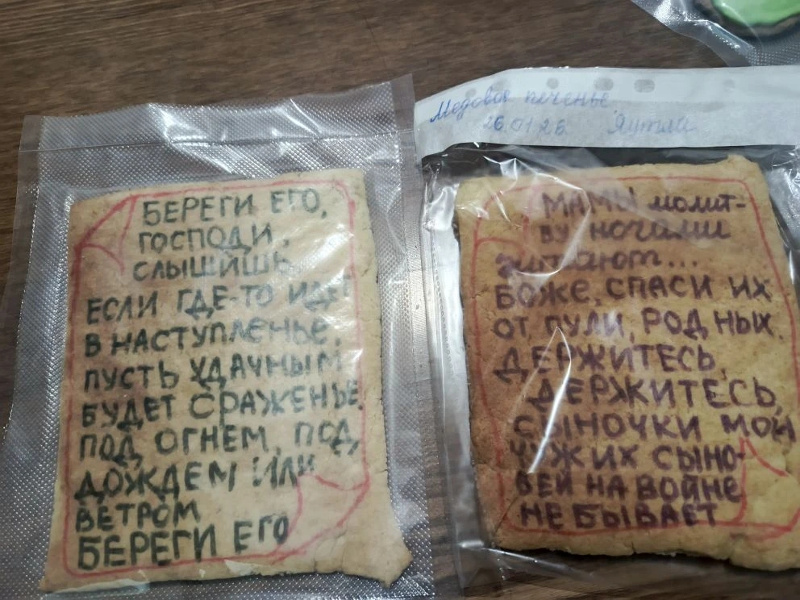 БЕРЕГИ ЕГО,
ГОСПОДИ.
СЛЫШИШЬ
ЕСЛИ ГДЕ-ТО ИДЕТ
В НАСТУПЛЕНЬЕ,
ПУСТЬ УДАЧНЫМ
БУДЕТ СРАЖЕНЬЕ.
ПОД ОГНЕМ, ПОД
ДОЖДЕМ ИЛИ
ВЕТРОМ
БЕРЕГИ ЕГО
Медовое печенье
26.01.26.
МАМЫ молит-
ву ночами
читают...
БОЖЕ, СПАСИ ИХ
ОТ ПУЛИ, РОДНЫХ.
ДЕРЖИТЕСЬ,
ДЕРЖИТЕСЬ,
СЫНОЧКИ МОИ
ЧУЖИХ СЫНО-
ВЕЙ НА ВОЙНЕ
НЕ БЫВАЕТ